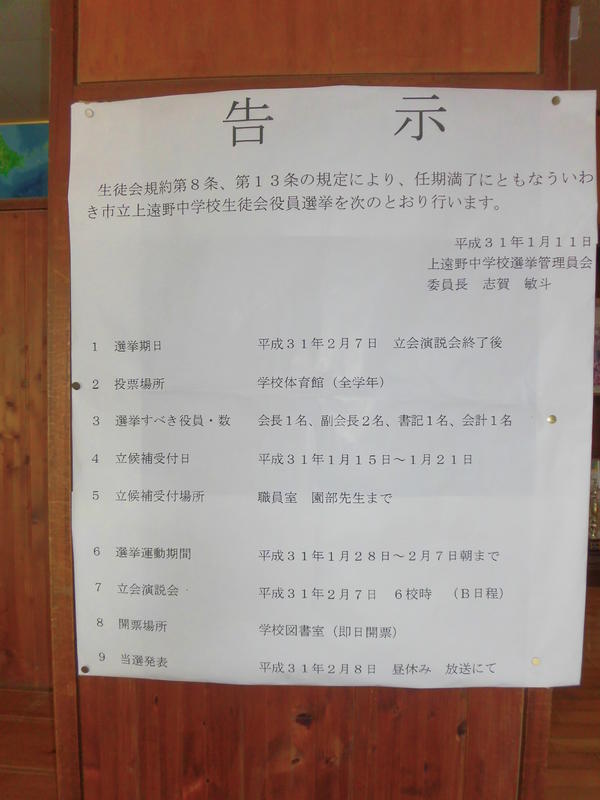 告示
生徒会規約第８条、第１３条の規定により、任期満了にともなういわ
き市立上遠野中学校生徒会役員選挙を次のとおり行います。
平成３１年１月１１日
上遠野中学校選挙管理員会
委員長　志賀　敏斗
１　選挙期日　平成３１年２月７日　立会演説会終了後
２　投票場所　学校体育館（全学年）
３　選挙すべき役員・数　会長１名、副会長２名、書記１名、会計１名
４　立候補受付日　平成３１年１月１５日～１月２１日
５　立候補受付場所　職員室　園部先生まで
６　選挙運動期間　平成３１年１月２８日～２月７日朝まで
７　立会演説会　平成３１年２月７日　６校時　（Ｂ日程）
８　開票場所　学校図書室（即日開票）
９　当選発表　平成３１年２月８日　昼休み　放送にて